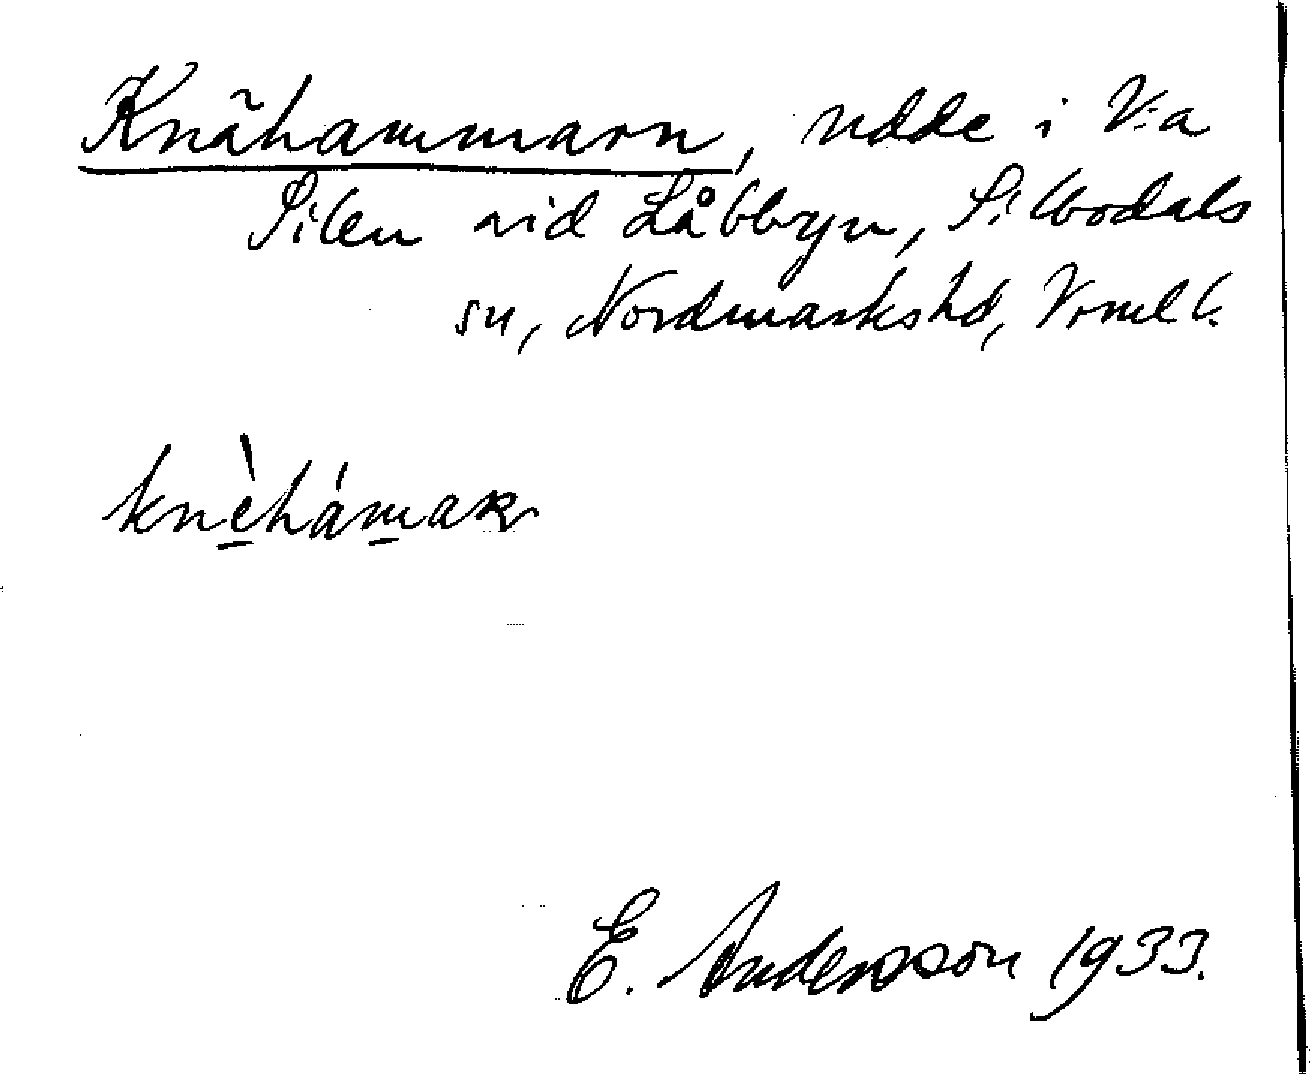 Knähammarn, udde i V:a
Silen vid Låbbyn, Sillbodals
sn, Nordmarkshd, Vrml.
knèhámaʀ
E. Andersson 1933.